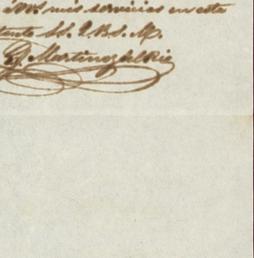 mis servicios en este
S.S. Q.B.S.M.
Martinez del Rio